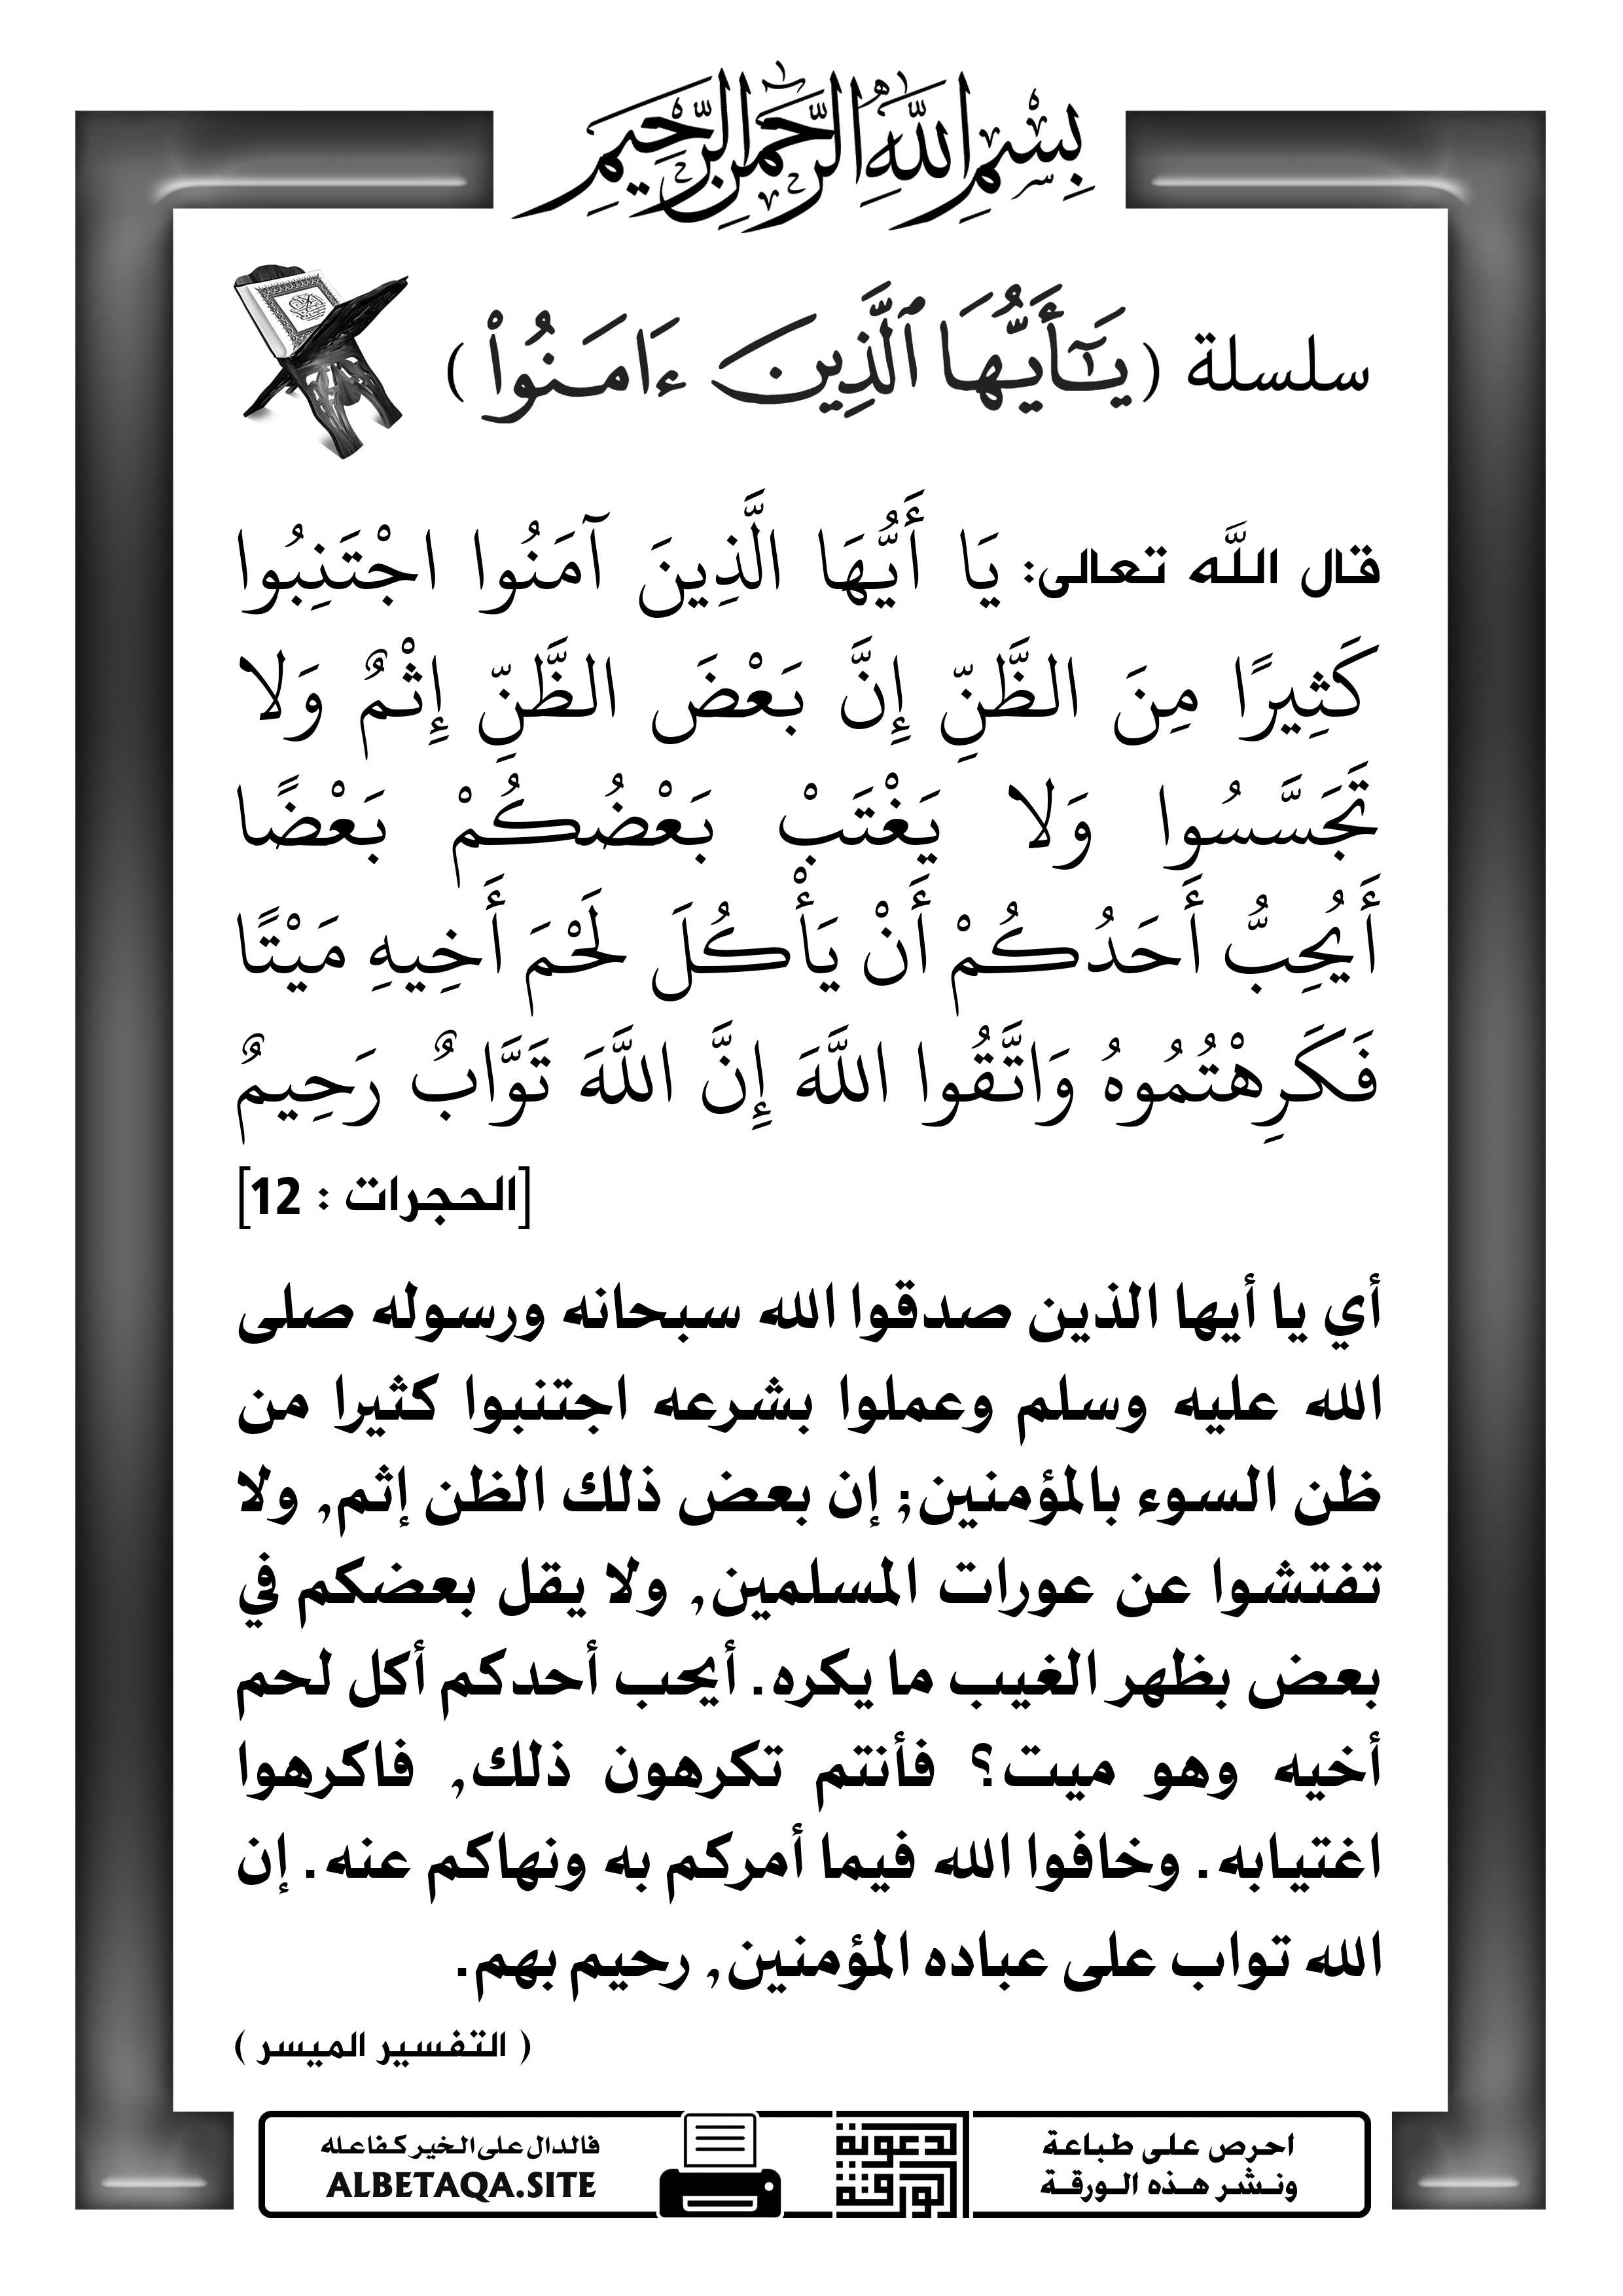 بِسْمِ اللَّهِ الرَّحْمَٰنِ الرَّحِيمِ
سلسلة (يَٰٓأَيُّهَا ٱلَّذِينَ ءَامَنُوا۟)
قال اللَّه تعالى: يَا أَيُّهَا الَّذِينَ آمَنُوا اجْتَنِبُوا
كَثِيرًا مِنَ الظَّنِّ إِنَّ بَعْضَ الظَّنِّ إِثْمٌ وَلا
تَجَسَّسُوا وَلا يَغْتَبْ بَعْضُكُمْ بَعْضًا
أَيُحِبُّ أَحَدُكُمْ أَنْ يَأْكُلَ لَحْمَ أَخِيهِ مَيْتًا
فَكَرِهْتُمُوهُ وَاتَّقُوا اللَّهَ إِنَّ اللَّهَ تَوَّابٌ رَحِيمٌ
[الحجرات : 12]
أي يا أيها الذين صدقوا الله سبحانه ورسوله صلى
الله عليه وسلم وعملوا بشرعه اجتنبوا كثيرا من
ظن السوء بالمؤمنين; إن بعض ذلك الظن إثم, ولا
تفتشوا عن عورات المسلمين, ولا يقل بعضكم في
بعض بظهر الغيب ما يكره. أيحب أحدكم أكل لحم
أخيه وهو ميت؟ فأنتم تكرهون ذلك, فاكرهوا
اغتيابه. وخافوا الله فيما أمركم به ونهاكم عنه. إن
الله تواب على عباده المؤمنين, رحيم بهم.
( التفسير الميسر )
احرص على طباعة
ونشر هذه الورقة
فالدال على الخير كفاعله
ALBETAQA.SITE